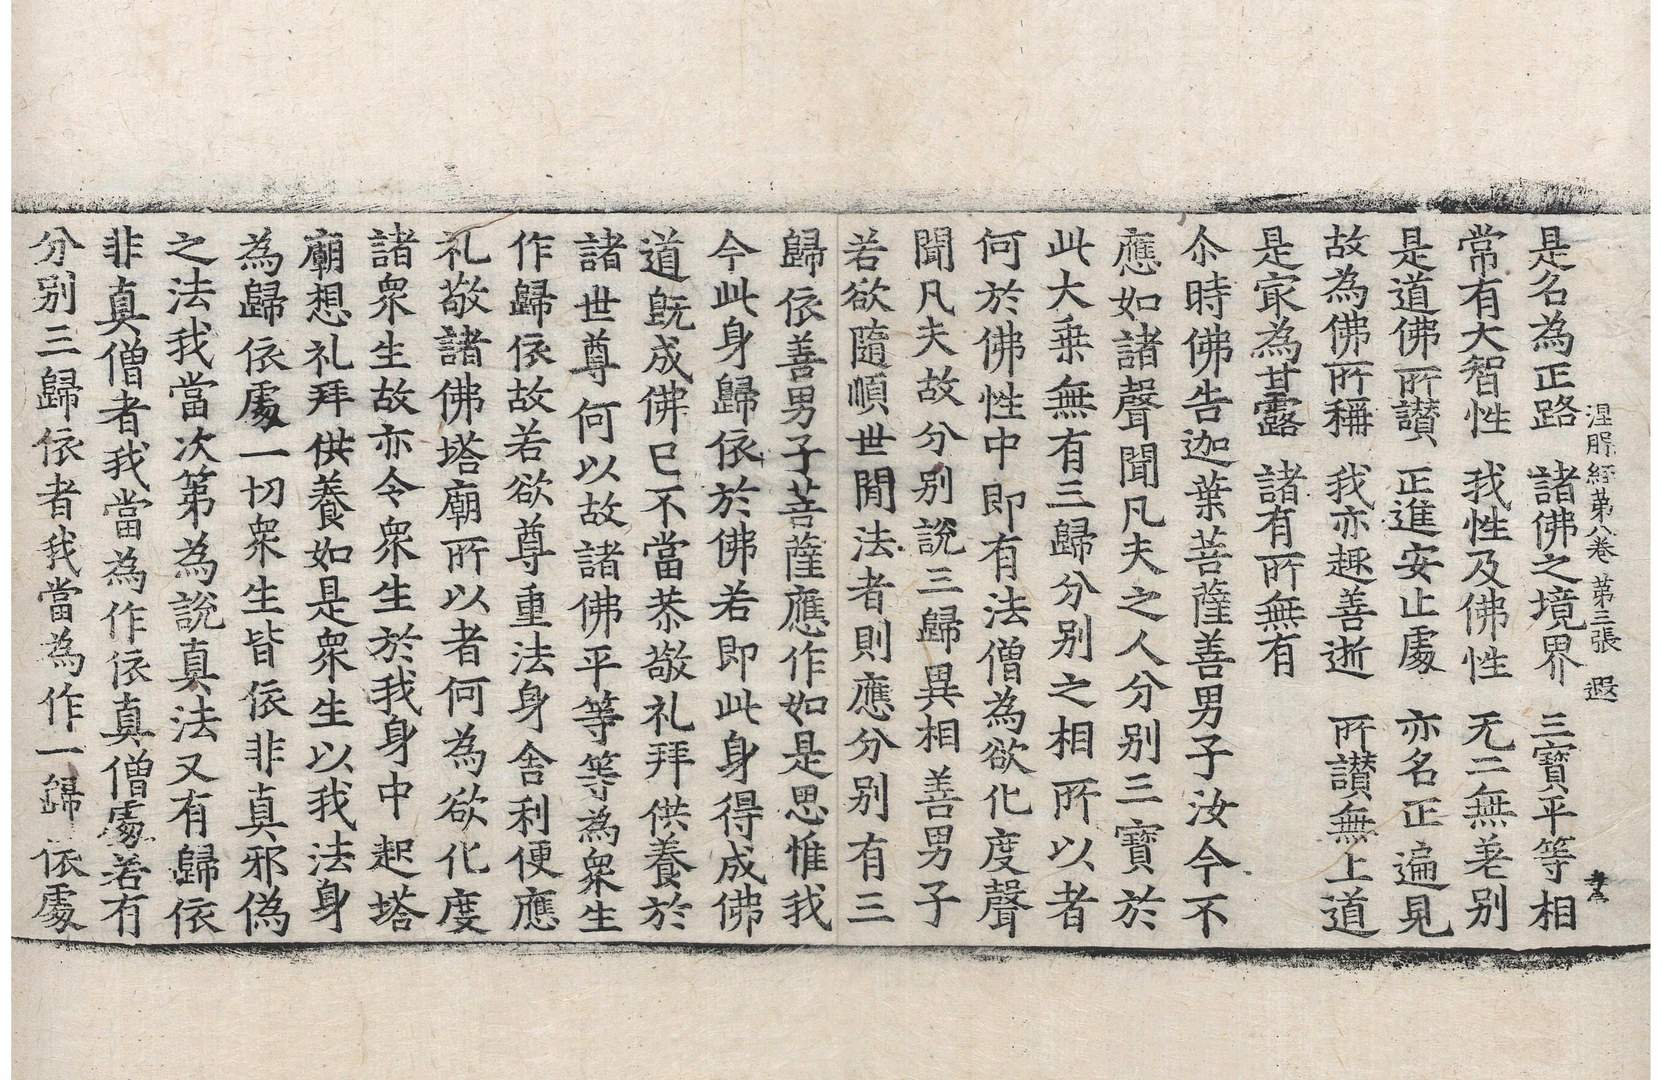 涅脮経苐八卷 苐三張 遐
是名為正路 諸佛之境界 三寶平等相
常有大智性 我性及佛性 无二無差別
是道佛所讃 正進安止處 亦名正遍見
故為佛所稱 我亦趣善逝 所讃無上道
是冣為甘露 諸有所無有
尒時佛告迦葉菩薩善男子汝今不
應如諸聲聞凡夫之人分別三寶於
此大乗無有三歸分別之相所以者
何於佛性中即有法僧為欲化度聲
聞凡夫故分別說三歸異相善男子
若欲隨順世閒法者則應分別有三
歸依善男子菩薩應作如是思惟我
今此身歸依於佛若即此身得成佛
道旣成佛已不當恭敬礼拜供養於
諸世尊何以故諸佛平等等為衆生
作歸依故若欲尊重法身舎利便應
礼敬諸佛塔廟所以者何為欲化度
諸衆生故亦令衆生於我身中起塔
廟想礼拜供養如是衆生以我法身
為歸依處一切衆生皆依非真邪偽
之法我當次第為說真法又有歸依
非真僧者我當為作依真僧處若有
分別三歸依者我當為作一歸依處